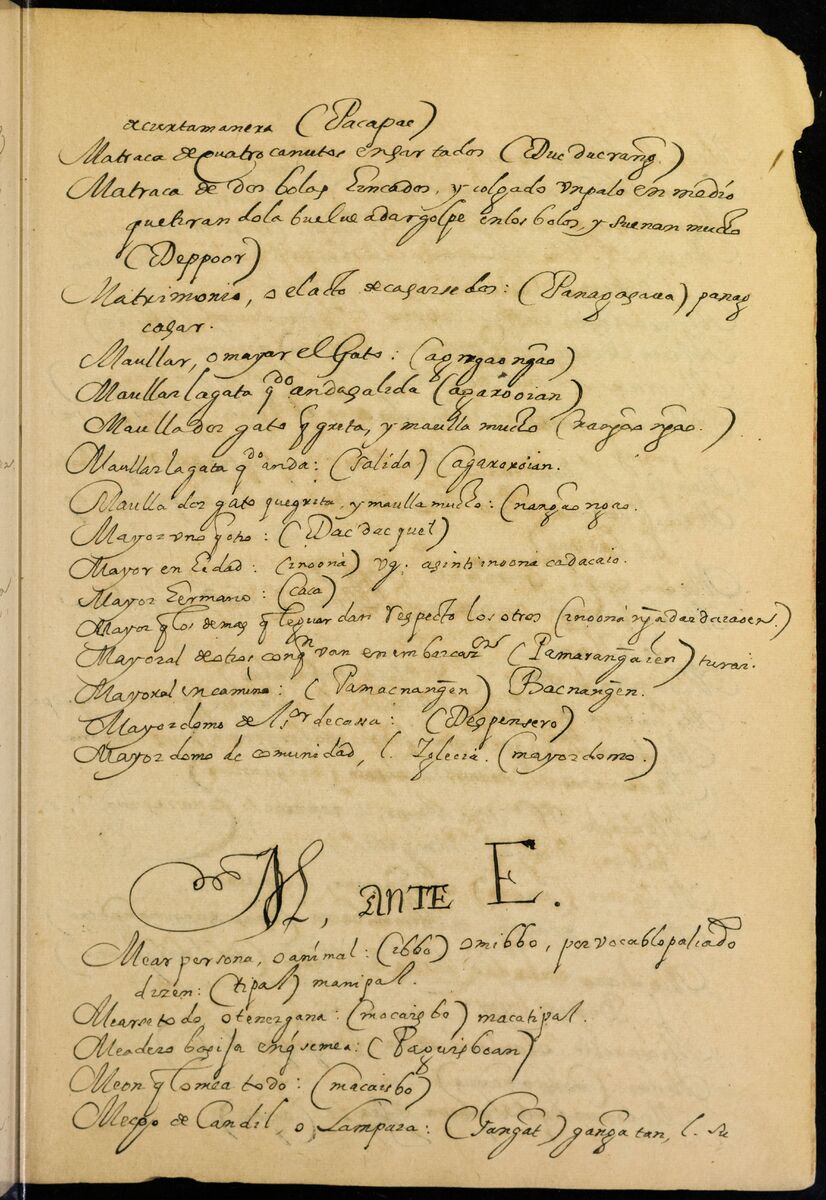 de cierta manera (Pacapac)
Matraca de quatro canutos ensartados (Duc ducrang̃.)
Matraca de dos bolas hincados, y colgado vnpalo en medio
quetirandola buelue adargolpe enlos bolos, y suenan mucho
(Deppoor)
Matrimonio, o elacto decasarsedos: (Panagasaua) panag
casar.
Maullar, o mayar el Gato: (agngao ngao)
Maullar lagata qdo andasalida (agarooian)
Maullador gato q̃ grita, y maulla mucho (nang̃ao ng̃ao.)
Maullar lagata qdo anda: (salida) (agaroroian.
Maulla dor gato quegrita, y maulla mucho: (nang̃ao ngao.
Mayor vno q otro: (Dac dac quel)
Mayor en hedad: (inooná) vg. asinti inooná cadacaio.
Mayor hermano: (caca)
Mayor q los demas q leguardan respecto los otros (inooná
Mayoral de otros con qn van en embarcaon (Pamarang̃aien) turai.
Mayoral en camino: (Pamacnang̃en) Bacnang̃en.
Mayordomo de l Sor decassa: (Despensero)
Mayordomo de comunidad, l. Iglecia. (mayordomo.)
M, ANTE E.
Mear persona, o animal: (ibbo) omibbo, por vocablopaliado
dizen: (tipal) manipal.
Mearse todo, o tenergana: (macaisbo) macatipal.
Meadero basija enq̃ semea: (Paguisboan)
Meon q lomea todo: (macaisbo)
Mecho de Candil, o Lampara: (Gang̃at) gang̃a tan, l. su